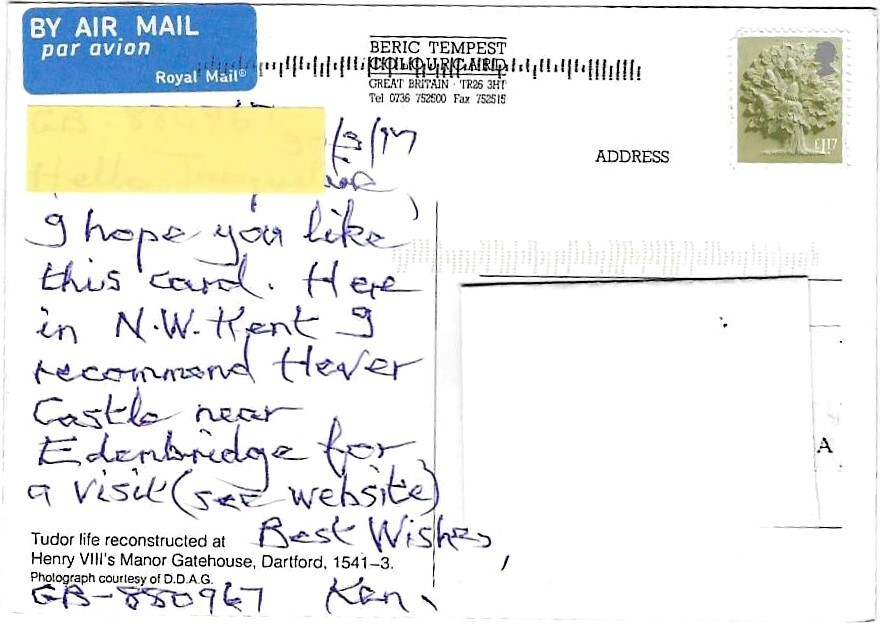 BY AIR MAIL
par avion
Royal Mail®
BERIC TEMPEST
COLOURCARD
GREAT BRITAIN · TR26 3HT
Tel 0736 752500 Fax 752515
£1.17
ADDRESS
/3/17
I hope you like
this card. Here
in N.W. Kent I
recommend Hever
Castle near
Edenbridge for
a visit (see website)
Best Wishes,
Tudor life reconstructed at
Henry VIII's Manor Gatehouse, Dartford, 1541–3.
Photograph courtesy of D.D.A.G.
GB-880967 Ken.
A